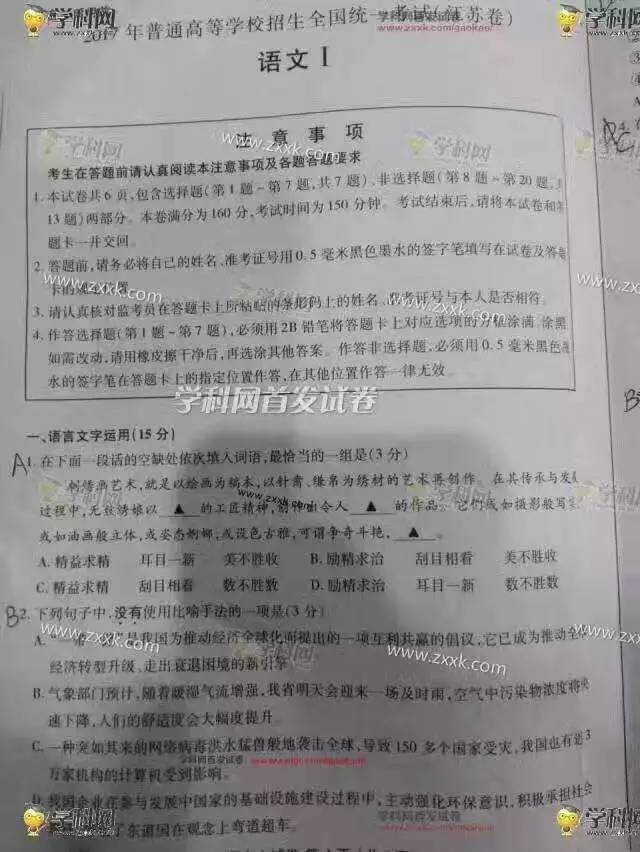 2017年普通高等学校招生全国统一考试(江苏卷)
语文 I
注意事项
考生在答题前请认真阅读本注意事项及各题答题要求
1. 本试卷共6页,包含选择题(第1题~第7题,共7题)、非选择题(第8题~第20题,共
13题)两部分。本卷满分为160分,考试时间为150分钟。考试结束后,请将本试卷和答
题卡一并交回。
2. 答题前,请务必将自己的姓名、准考证号用0.5毫米黑色墨水的签字笔填写在试卷及答题
卡的规定位置。
3. 请认真核对监考员在答题卡上所粘贴的条形码上的姓名、准考证号与本人是否相符。
4. 作答选择题(第1题~第7题),必须用2B铅笔将答题卡上对应选项的方框涂满、涂黑
如需改动,请用橡皮擦干净后,再选涂其他答案。作答非选择题,必须用0.5毫米黑色墨
水的签字笔在答题卡上的指定位置作答,在其他位置作答一律无效。
学科网首发试卷
一、语言文字运用(15分)
A 1. 在下面一段话的空缺处依次填入词语,最恰当的一组是(3分)
刺绣画艺术,就是以绘画为稿本,以针黹、缣帛为绣材的艺术再创作。在其传承与发展
过程中,无数绣娘以 ▲ 的工匠精神,创作出令人 ▲ 的作品。它们或如摄影般写实
或如油画般立体,或姿态婀娜,或设色古雅,可谓争奇斗艳, ▲ 。
A. 精益求精 耳目一新 美不胜收 B. 励精求治 刮目相看 美不胜收
C. 精益求精 刮目相看 数不胜数 D. 励精求治 耳目一新 数不胜数
B 2. 下列句子中,没有使用比喻手法的一项是(3分)
A. 一带一路 是我国为推动经济全球化而提出的一项互利共赢的倡议,它已成为推动全球
经济转型升级、走出衰退困境的新引擎
B. 气象部门预计,随着暖湿气流增强,我省明天会迎来一场及时雨,空气中污染物浓度将迅
速下降,人们的舒适度会大幅度提升
C. 一种突如其来的网络病毒洪水猛兽般地袭击全球,导致150多个国家受灾,我国也有近3
万家机构的计算机受到影响。
D. 我国企业在参与发展中国家的基础设施建设过程中,主动强化环保意识,积极承担社会
东道国在观念上弯道超车。
学科网
www.zxxk.com
学科网首发试卷
www.zxxk.com/gaokao/